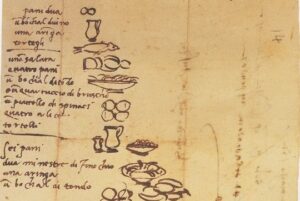 pani dua
u bochal di vino
una aringa
tortegli
una salata
quatro pani
u bochal di tōdo
piatello di spinaci
quatro alice
tortelli
sei pani
dua minestre di finochio
una aringa
u bochal di tondo